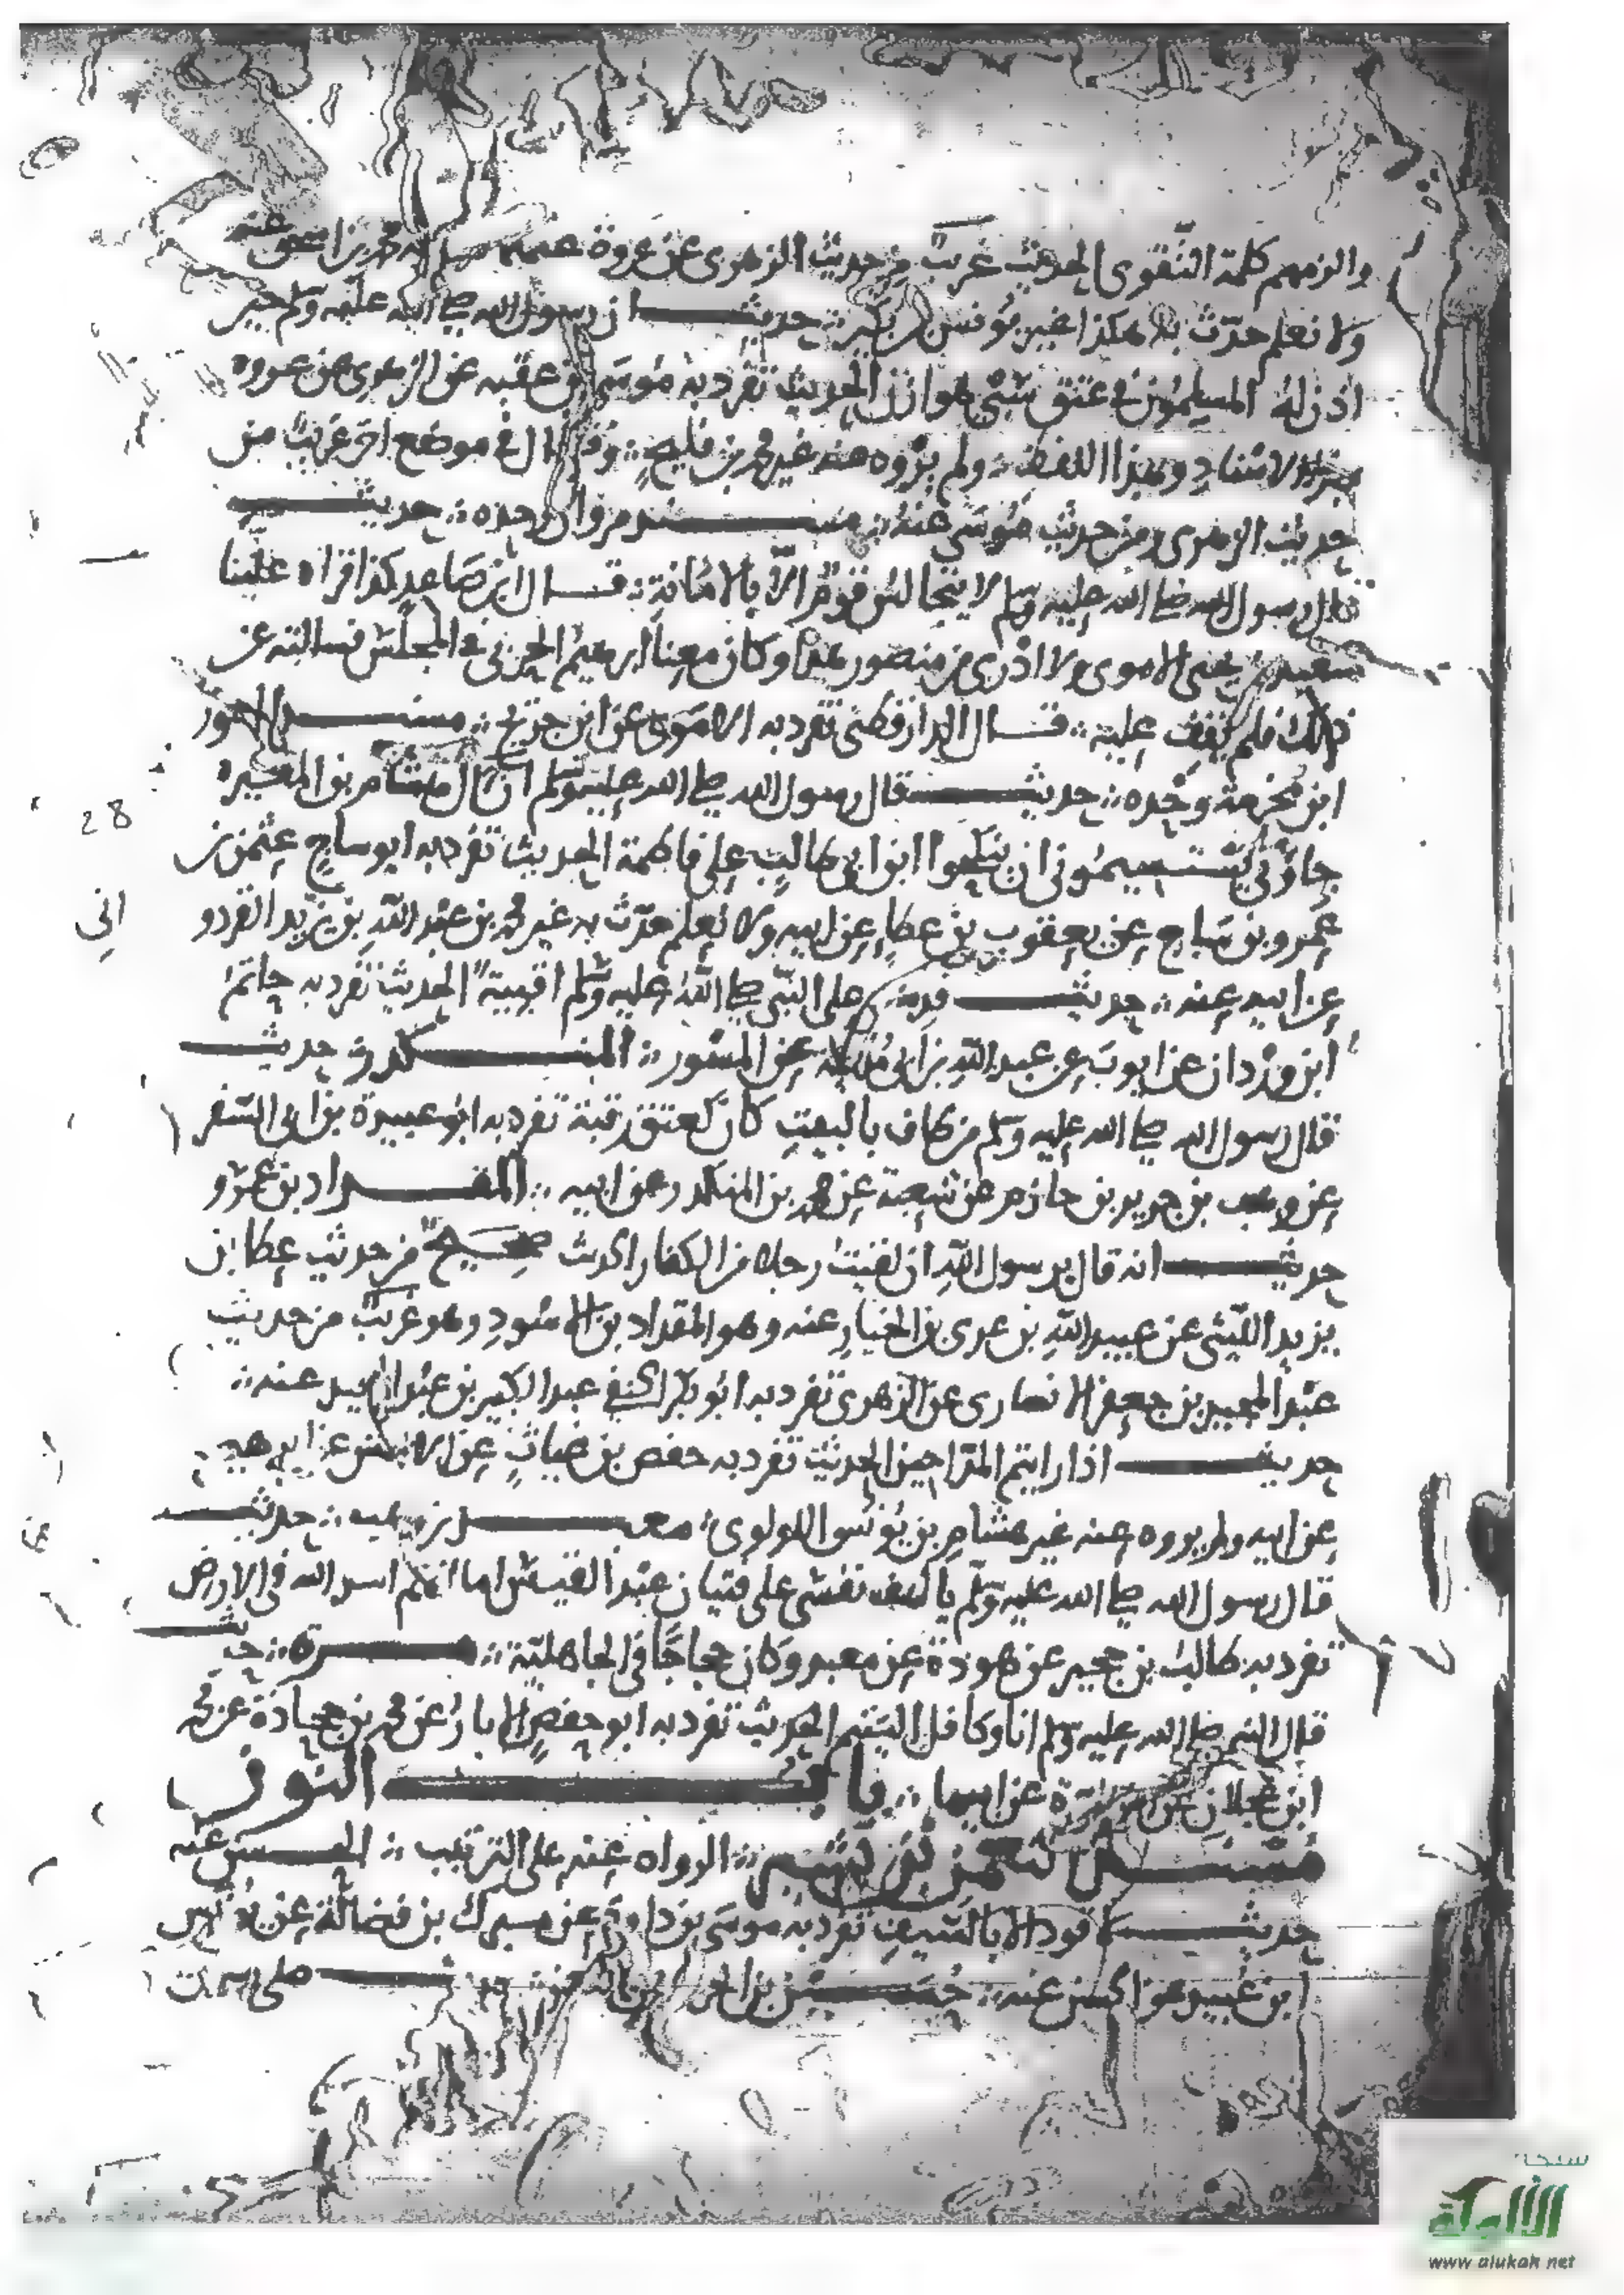 والزمهم كلمة التقوى الحديث غريب من حديث الزهري عن عروة
ولا نعلم حدث به هكذا غير يونس بن بكير حديث ان رسول الله صلى الله عليه وسلم حين
اذن له المسلمون في عتق سبي هوازن الحديث تفرد به موسى بن عقبه عن الزهري عن عروه
بهذا الاسناد وبهذا اللفظ ولم يروه عنه غير محمد بن فليح وقال في موضع اخر غريب من
حديث الزهري ومن حديث موسى عنه مسند مروان وحده حديث
قال رسول الله صلى الله عليه وسلم لا يتجالس قوم الا بالامانة قال ابن صاعد كذا قراه علينا
سعيد بن يحيى الاموي ولا ادري من منصور هذا وكان معنا ابرهيم الحربي في المجلس فسالته عن
ذلك فلم يقف عليه قال الدارقطني تفرد به الاموي عن ابن جريج مسند المسور
ابن مخرمة وحده حديث قال رسول الله صلى الله عليه وسلم ان ال هشام بن المغيره
جاؤني ان ينكحوا ابن ابي طالب على فاطمة الحديث تفرد به ابو ساج عثمن بن
عمرو بن ساج عن يعقوب بن عطاء عن ابيه ولا نعلم حدث به غير محمد بن عبد الله بن يزيد القردو
اني
عن ابيه عنه حديث قدمت على النبي صلى الله عليه وسلم اقبية الحديث تفرد به حاتم
ابن وردان عن ايوب عن عبد الله بن ابي مليكة عن المسور المنكدر حديث
قال رسول الله صلى الله عليه وسلم من طاف بالبيت كان كعتق رقبة تفرد به ابو عبيدة بن ابي السفر
عن وهب بن جرير بن حازم عن شعبة عن محمد بن المنكدر عن ابيه المقداد بن عمرو
حديث انه قال يرسول الله ان لقيت رجلا من الكفار الحديث صحيح من حديث عطا بن
يزيد الليثي عن عبيد الله بن عدي بن الخيار عنه وهو المقداد بن الاسود وهو غريب من حديث
عبد الحميد بن جعفر الانصاري عن الزهري تفرد به ابو بكر الحنفي عبد الكبير بن عبد المجيد عنه
حديث اذا رايتم المداحين الحديث تفرد به حفص بن غياث عن الاعمش عن ابرهيم
عن ابيه ولم يروه عنه غير هشام بن يونس اللولوي معبد بن وهب حديث
قال رسول الله صلى الله عليه وسلم يا لهف نفسي على فتيان عبد القيس اما انهم اسد الله في الارض
تفرد به طالب بن حجير عن هودة عن معبد وكان حجاجا في الجاهلية مرة حديث
قال النبي صلى الله عليه وسلم انا وكافل اليتيم الحديث تفرد به ابو حفص الابار عن محمد بن جحادة عن محمد
ابن عجلان عن عن ابيها باب النون
مسند النعمن بن بشير الرواه عنه على الترتيب الحسن عنه
حديث لا قود الا بالسيف تفرد به موسى بن داود عن مبرك بن فضالة عن يونس
ابن عبيد عن الحسن عنه
28
شبكة
الألوكة
www.alukah.net